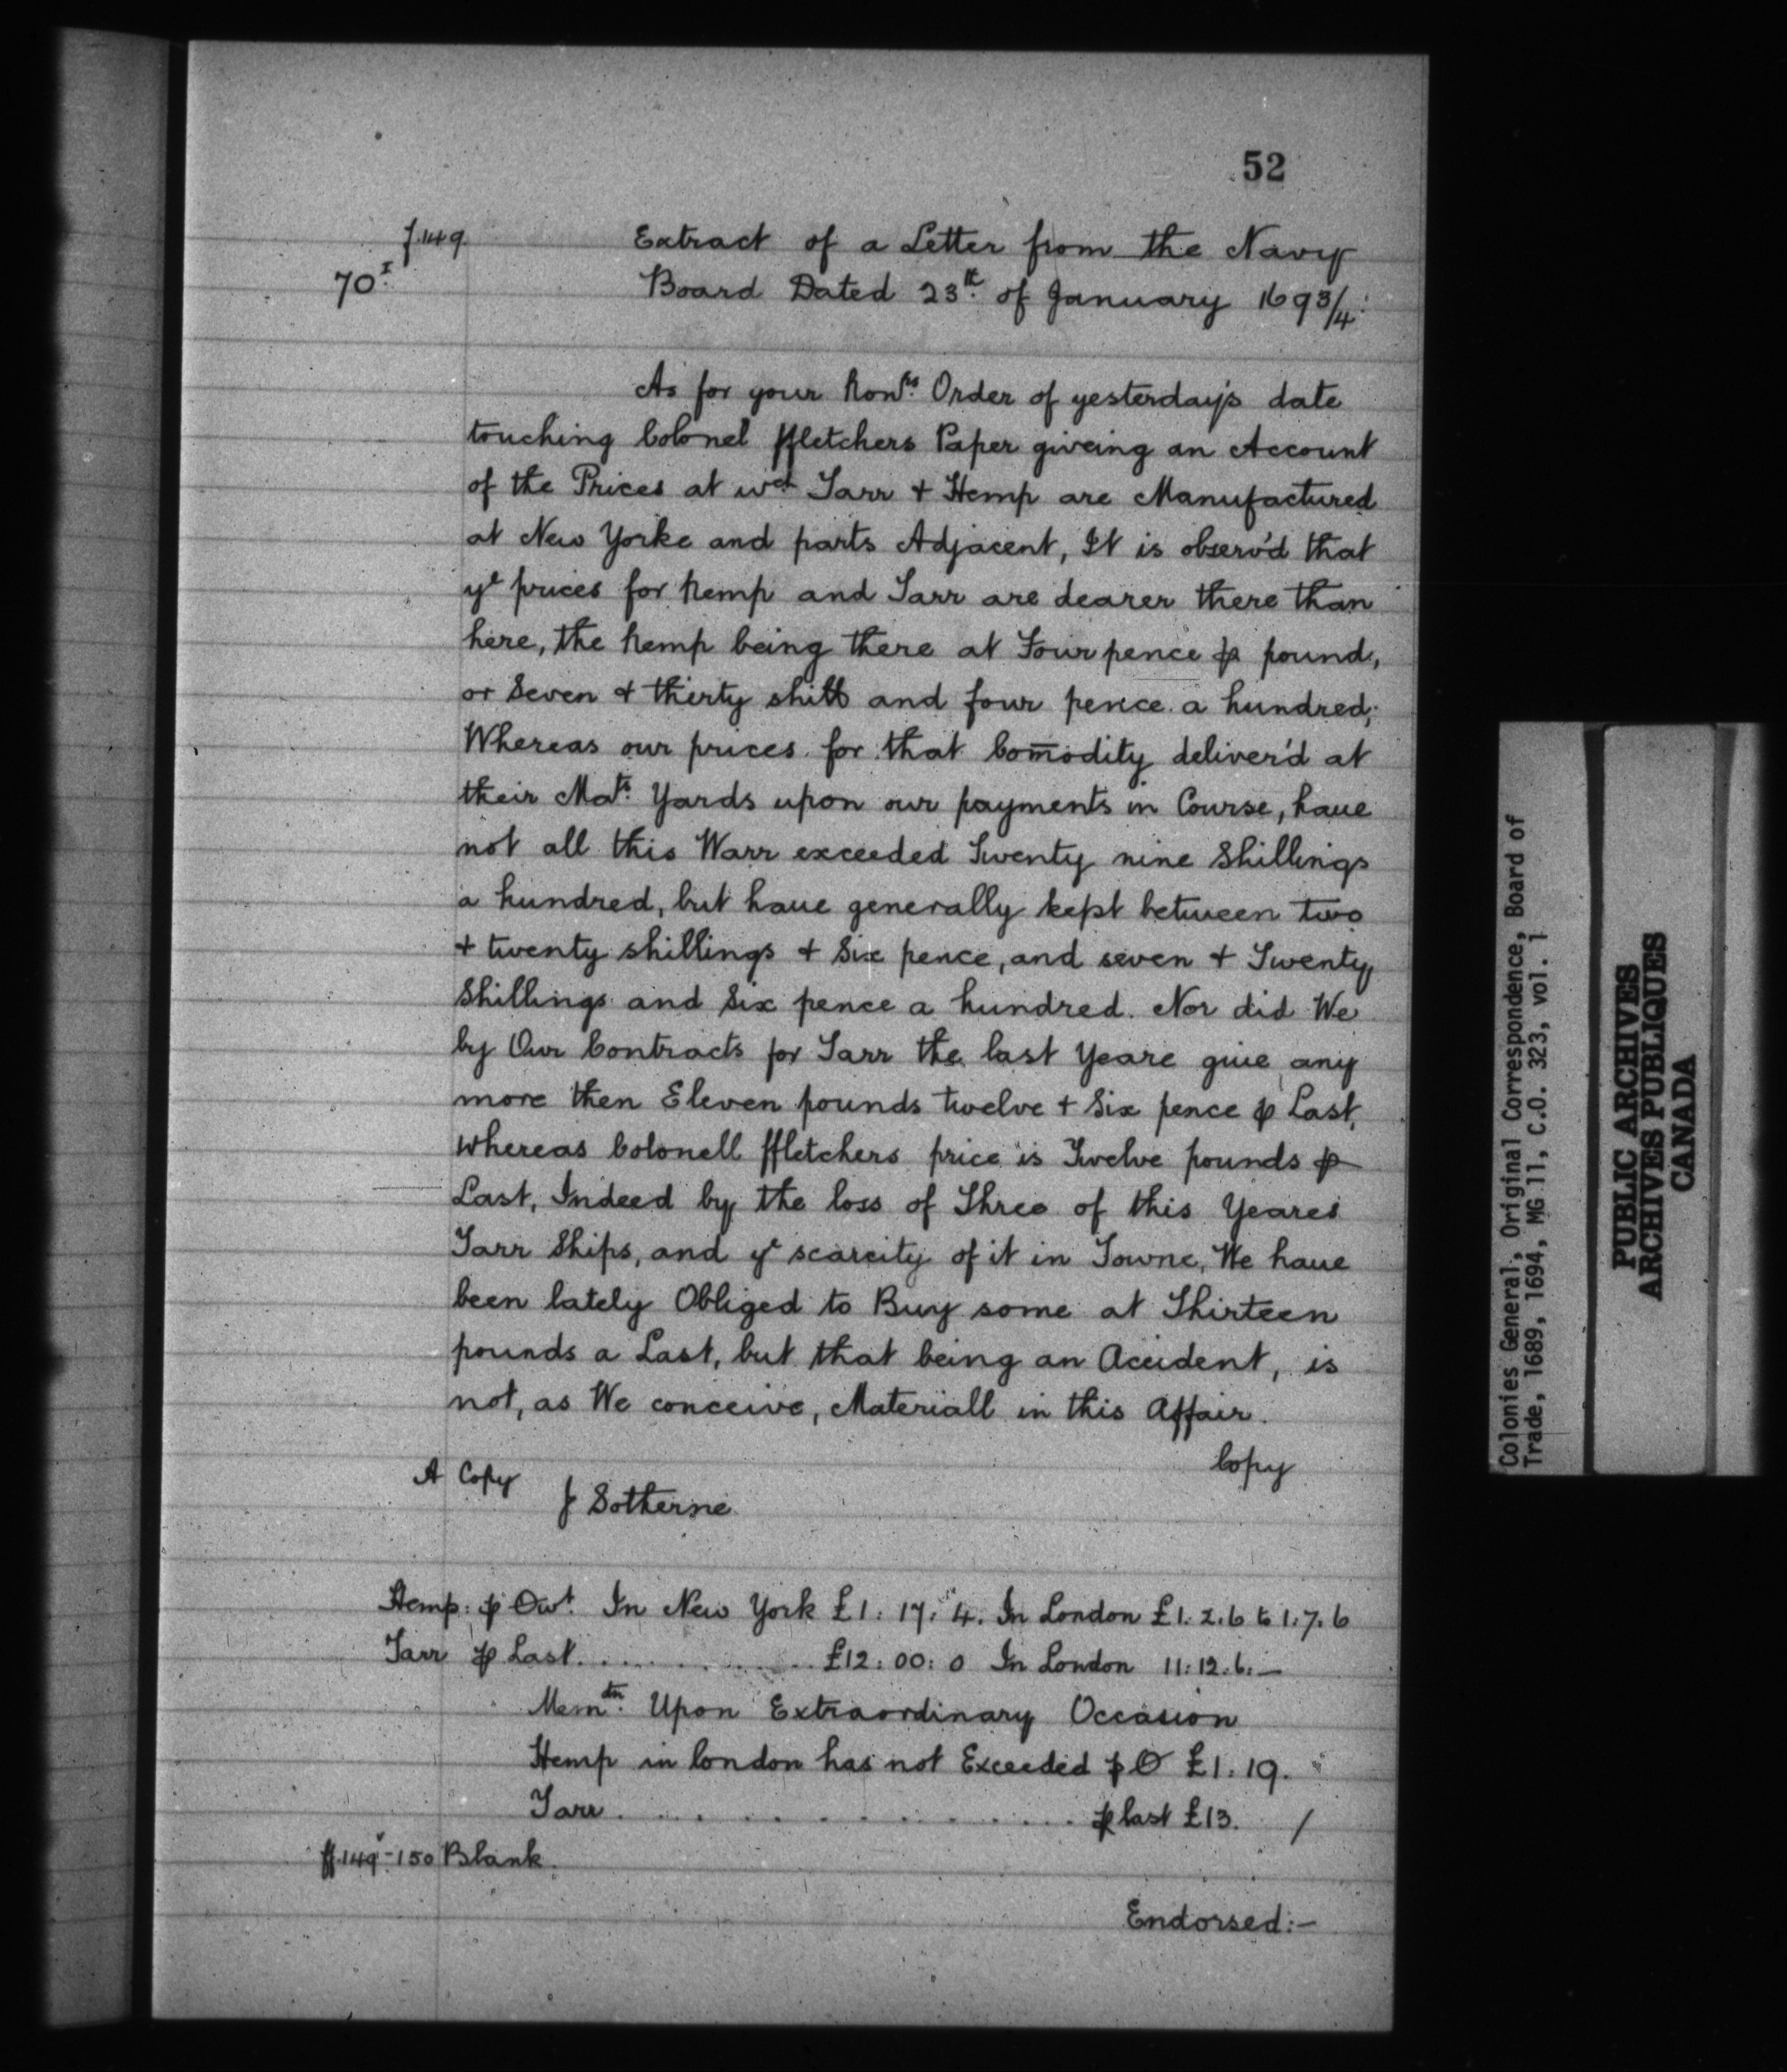 52
f.149.
70.I
Extract of a Letter from the Navy
Board Dated 23th. of January 1693/4:
As for your honrs. Order of yesterday's date
touching Colonel ffletchers Paper giveing an Account
of the Prices at wch Tarr + Hemp are Manufactured
at New Yorke and parts Adjacent, It is observ'd that
ye prices for hemp and Tarr are dearer there than
here, the hemp being there at Four pence ⅌ pound,
or Seven + thirty shill and four pence a hundred;
Whereas our prices for that Com̄odity deliver'd at
their Mats. Yards upon our payments in Course, haue
not all this Warr exceeded Twenty nine Shillings
a hundred, but haue generally kept between two
+ twenty shillings + Six pence, and seven + Twenty
Shillings and Six pence a hundred. Nor did We
by Our Contracts for Tarr the last Yeare giue any
more then Eleven pounds twelve + Six pence ⅌ Last,
whereas Colonell ffletchers price is Twelve pounds ⅌
Last, Indeed by the loss of Three of this Yeares
Tarr Ships, and ye scarcity of it in Towne, We haue
been lately Obliged to Buy some at Thirteen
pounds a Last, but that being an Accident, is
not, as We conceive, Materiall in this Affair.
Copy
A Copy
J Sotherne
Hemp: ⅌ Cwt. In New York £1: 17: 4. In London £1. 2. 6 to 1. 7. 6
Tarr ⅌ Last................£12: 00: 0 In London 11: 12. 6: —
Memdm. Upon Extraordinary Occasion
Hemp in london has not Exceeded ⅌ C £1. 19.
Tarr........................⅌ last £13. /
ff.149v-150 Blank.
Endorsed:-
Colonies General; Original Correspondence, Board of
Trade, 1689, 1694, MG 11, C.O. 323, vol. 1
PUBLIC ARCHIVES
ARCHIVES PUBLIQUES
CANADA